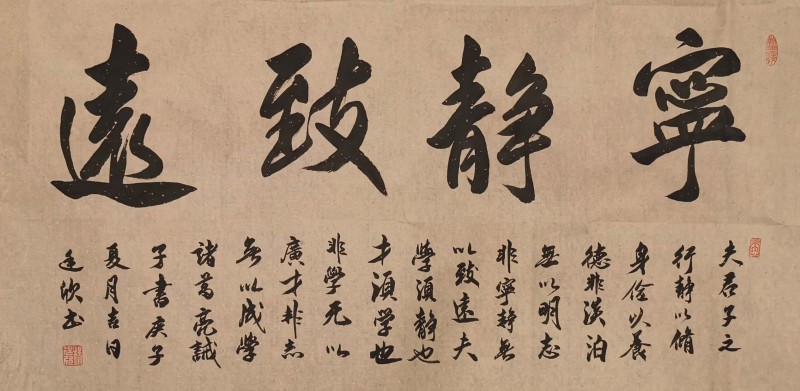 寧靜致遠
夫君子之
行靜以脩
身俭以養
德非淡泊
無以明志
非寧静無
以致遠夫
學須靜也
才須学也
非學无以
廣才非志
無以成學
諸葛亮誡
子書庚子
夏月吉日
廷欣书